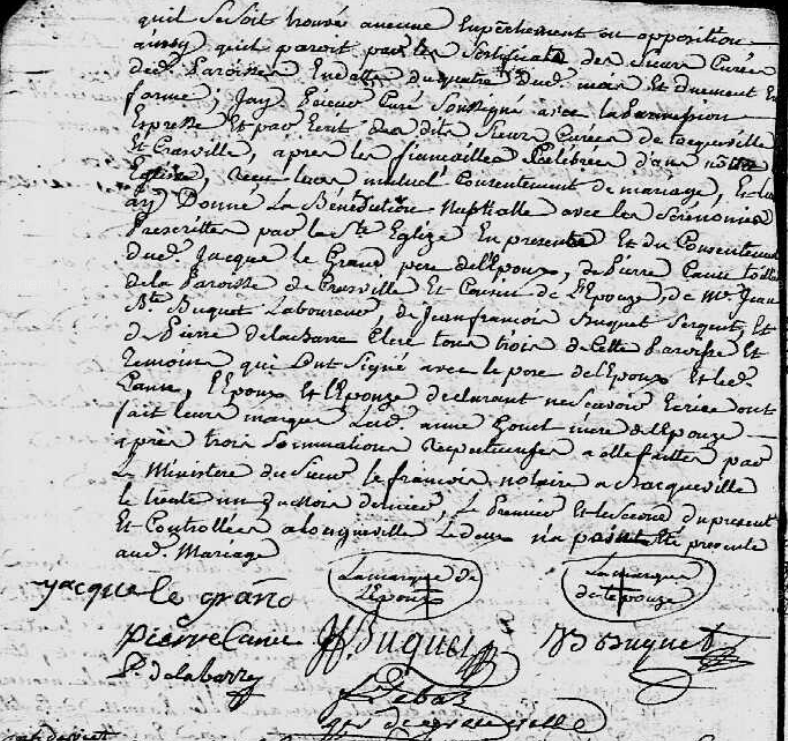 quil se soit trouvé aucune Empêchement ou opposition
ainsy quil paroit par les Sertificats des Sieurs Curés
desd. Paroisses En datte du quatre dud. mois Et duement En
forme; Jay Curé Soussigné avec la permission
Expresse Et par Ecrit des dits Sieurs Curés de tocqueville
Et Crasville, après les fiancailles Celébrées dans nôtre
Eglise, reçu leur mutuel Consentement de mariage, Et leur
ay Donné La Bénédiction Nuptialle avec les Sérémonies
Prescrittes par la Ste Eglize En presence Et du Consentement
dud. Jacque le Grand pere de l'Epoux, de Pierre Canu
de la Paroisse de Crasville Et Cousin de l'Epouze, de Mr. Jean
Bte. Buquet Laboureur, de Jean francois Buquet Sergent, Et
de Pierre delabarre Clerc tous trois de Cette Paroisse Et
temoins qui ont Signé avec le pere de l'Epoux Et led.
Canu, l'Epoux Et l'Epouze declarant ne Scavoir Ecrire ont
fait leurs marques, Lad. anne mere de l'Epouze
après trois Sommations a elle faittes par
Le Ministere du Sieur le francois notaire a Bacqueville
le trente un du mois dernier, le Premier Et le Second du present
Et Controllées a Longueville Le deux n'a point Eté presente
aud. Mariage
yacque le grand
La marque de
l'Epoux
La marque
de lepouze
pierre Canu
Jf. Buquet
JB Buquet
P. delabarre